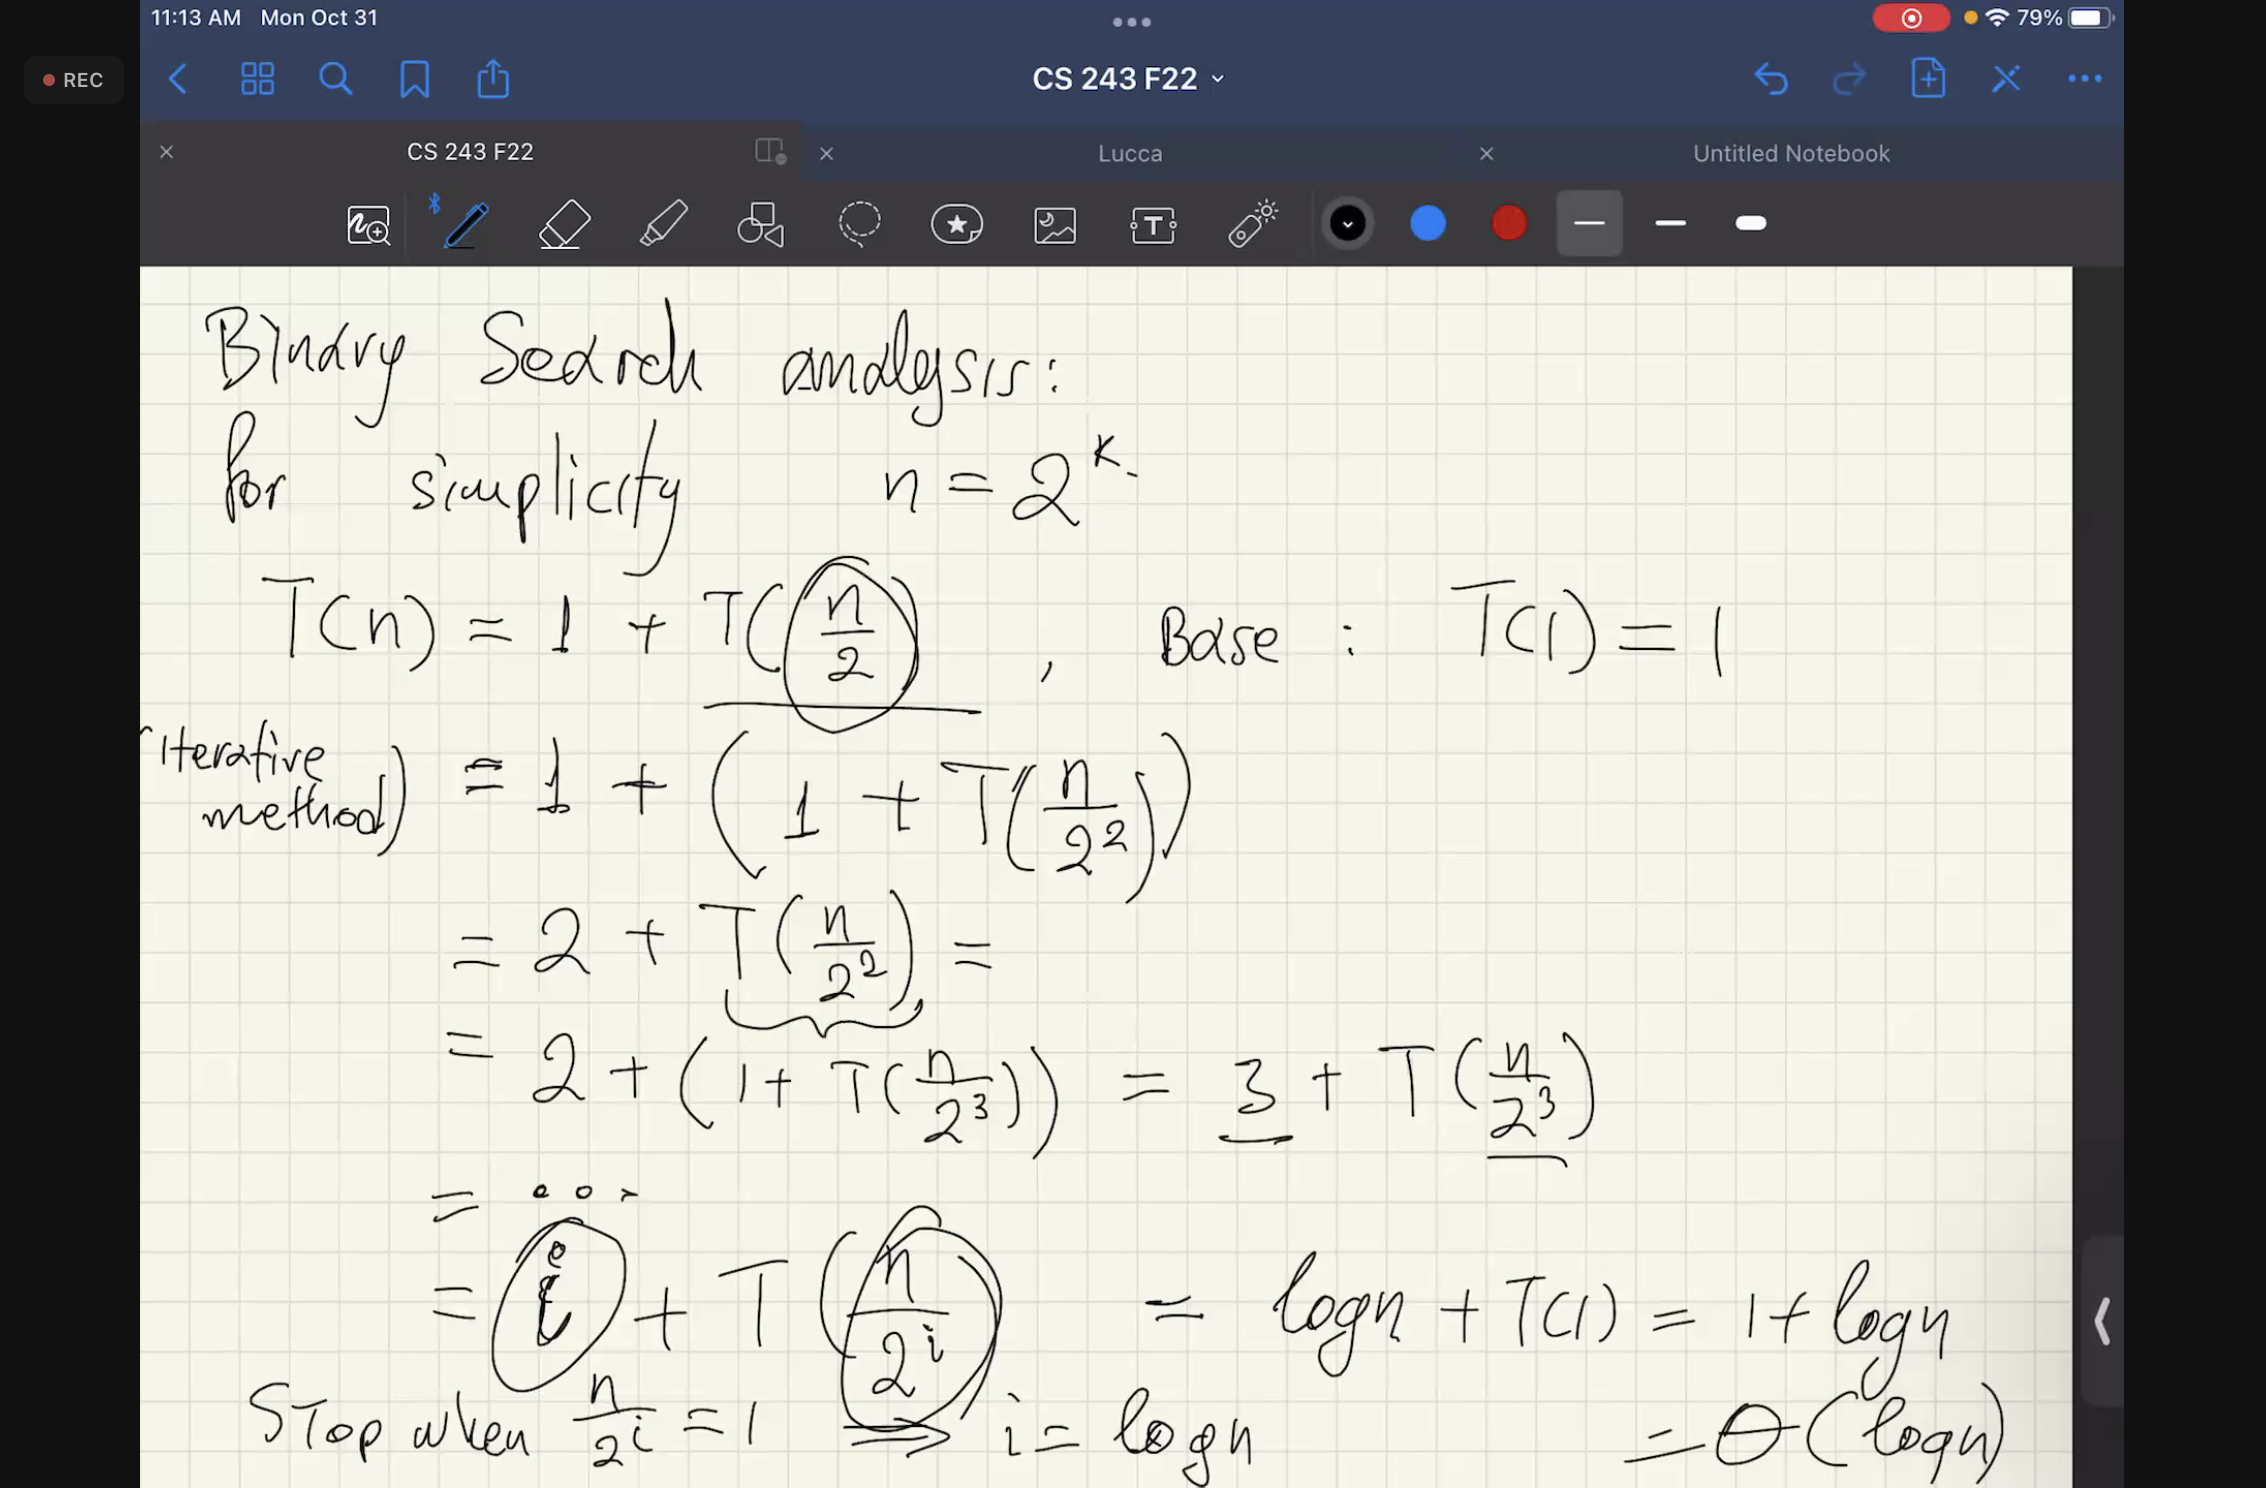 11:13 AM Mon Oct 31
79%
REC
CS 243 F22
CS 243 F22
Lucca
Untitled Notebook
Binary Search analysis:
for simplicity n = 2^k.
T(n) = 1 + T(n/2) , Base : T(1) = 1
(iterative method) = 1 + (1 + T(n/2^2))
= 2 + T(n/2^2) =
= 2 + (1 + T(n/2^3)) = 3 + T(n/2^3)
= ...
= i + T(n/2^i) = logn + T(1) = 1 + logn
Stop when n/2^i = 1 ⟹ i = logn = Θ(logn)